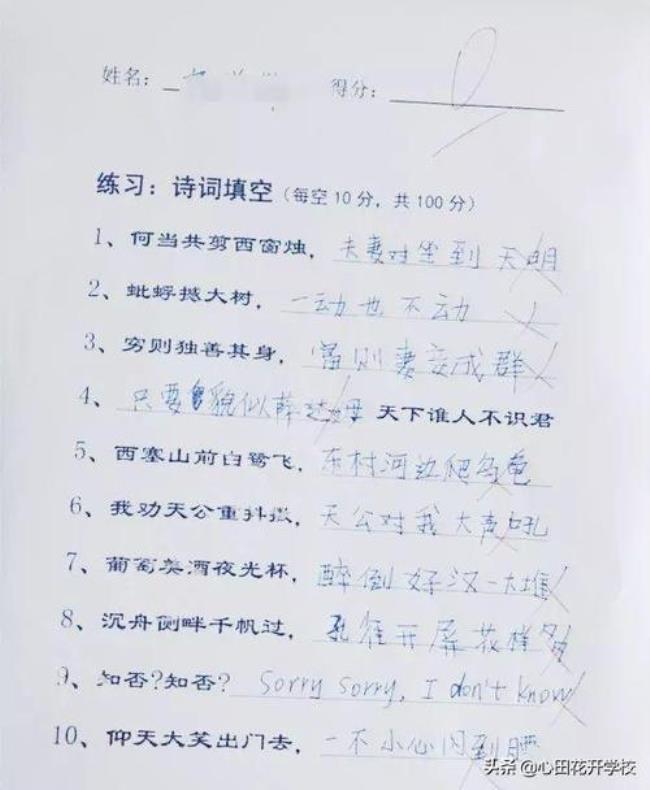 姓名：
得分：0
练习：诗词填空（每空10分，共100分）
1、何当共剪西窗烛，夫妻对坐到天明
2、蚍蜉撼大树，一动也不动
3、穷则独善其身，富则妻妾成群
4、只要貌似薛达母 天下谁人不识君
5、西塞山前白鹭飞，东村河边爬乌龟
6、我劝天公重抖擞，天公对我大声吼
7、葡萄美酒夜光杯，醉倒好汉一大堆
8、沉舟侧畔千帆过，孔雀开屏花样多
9、知否？知否？Sorry sorry, I don't know
10、仰天大笑出门去，一不小心闪到腰
头条 @心田花开学校